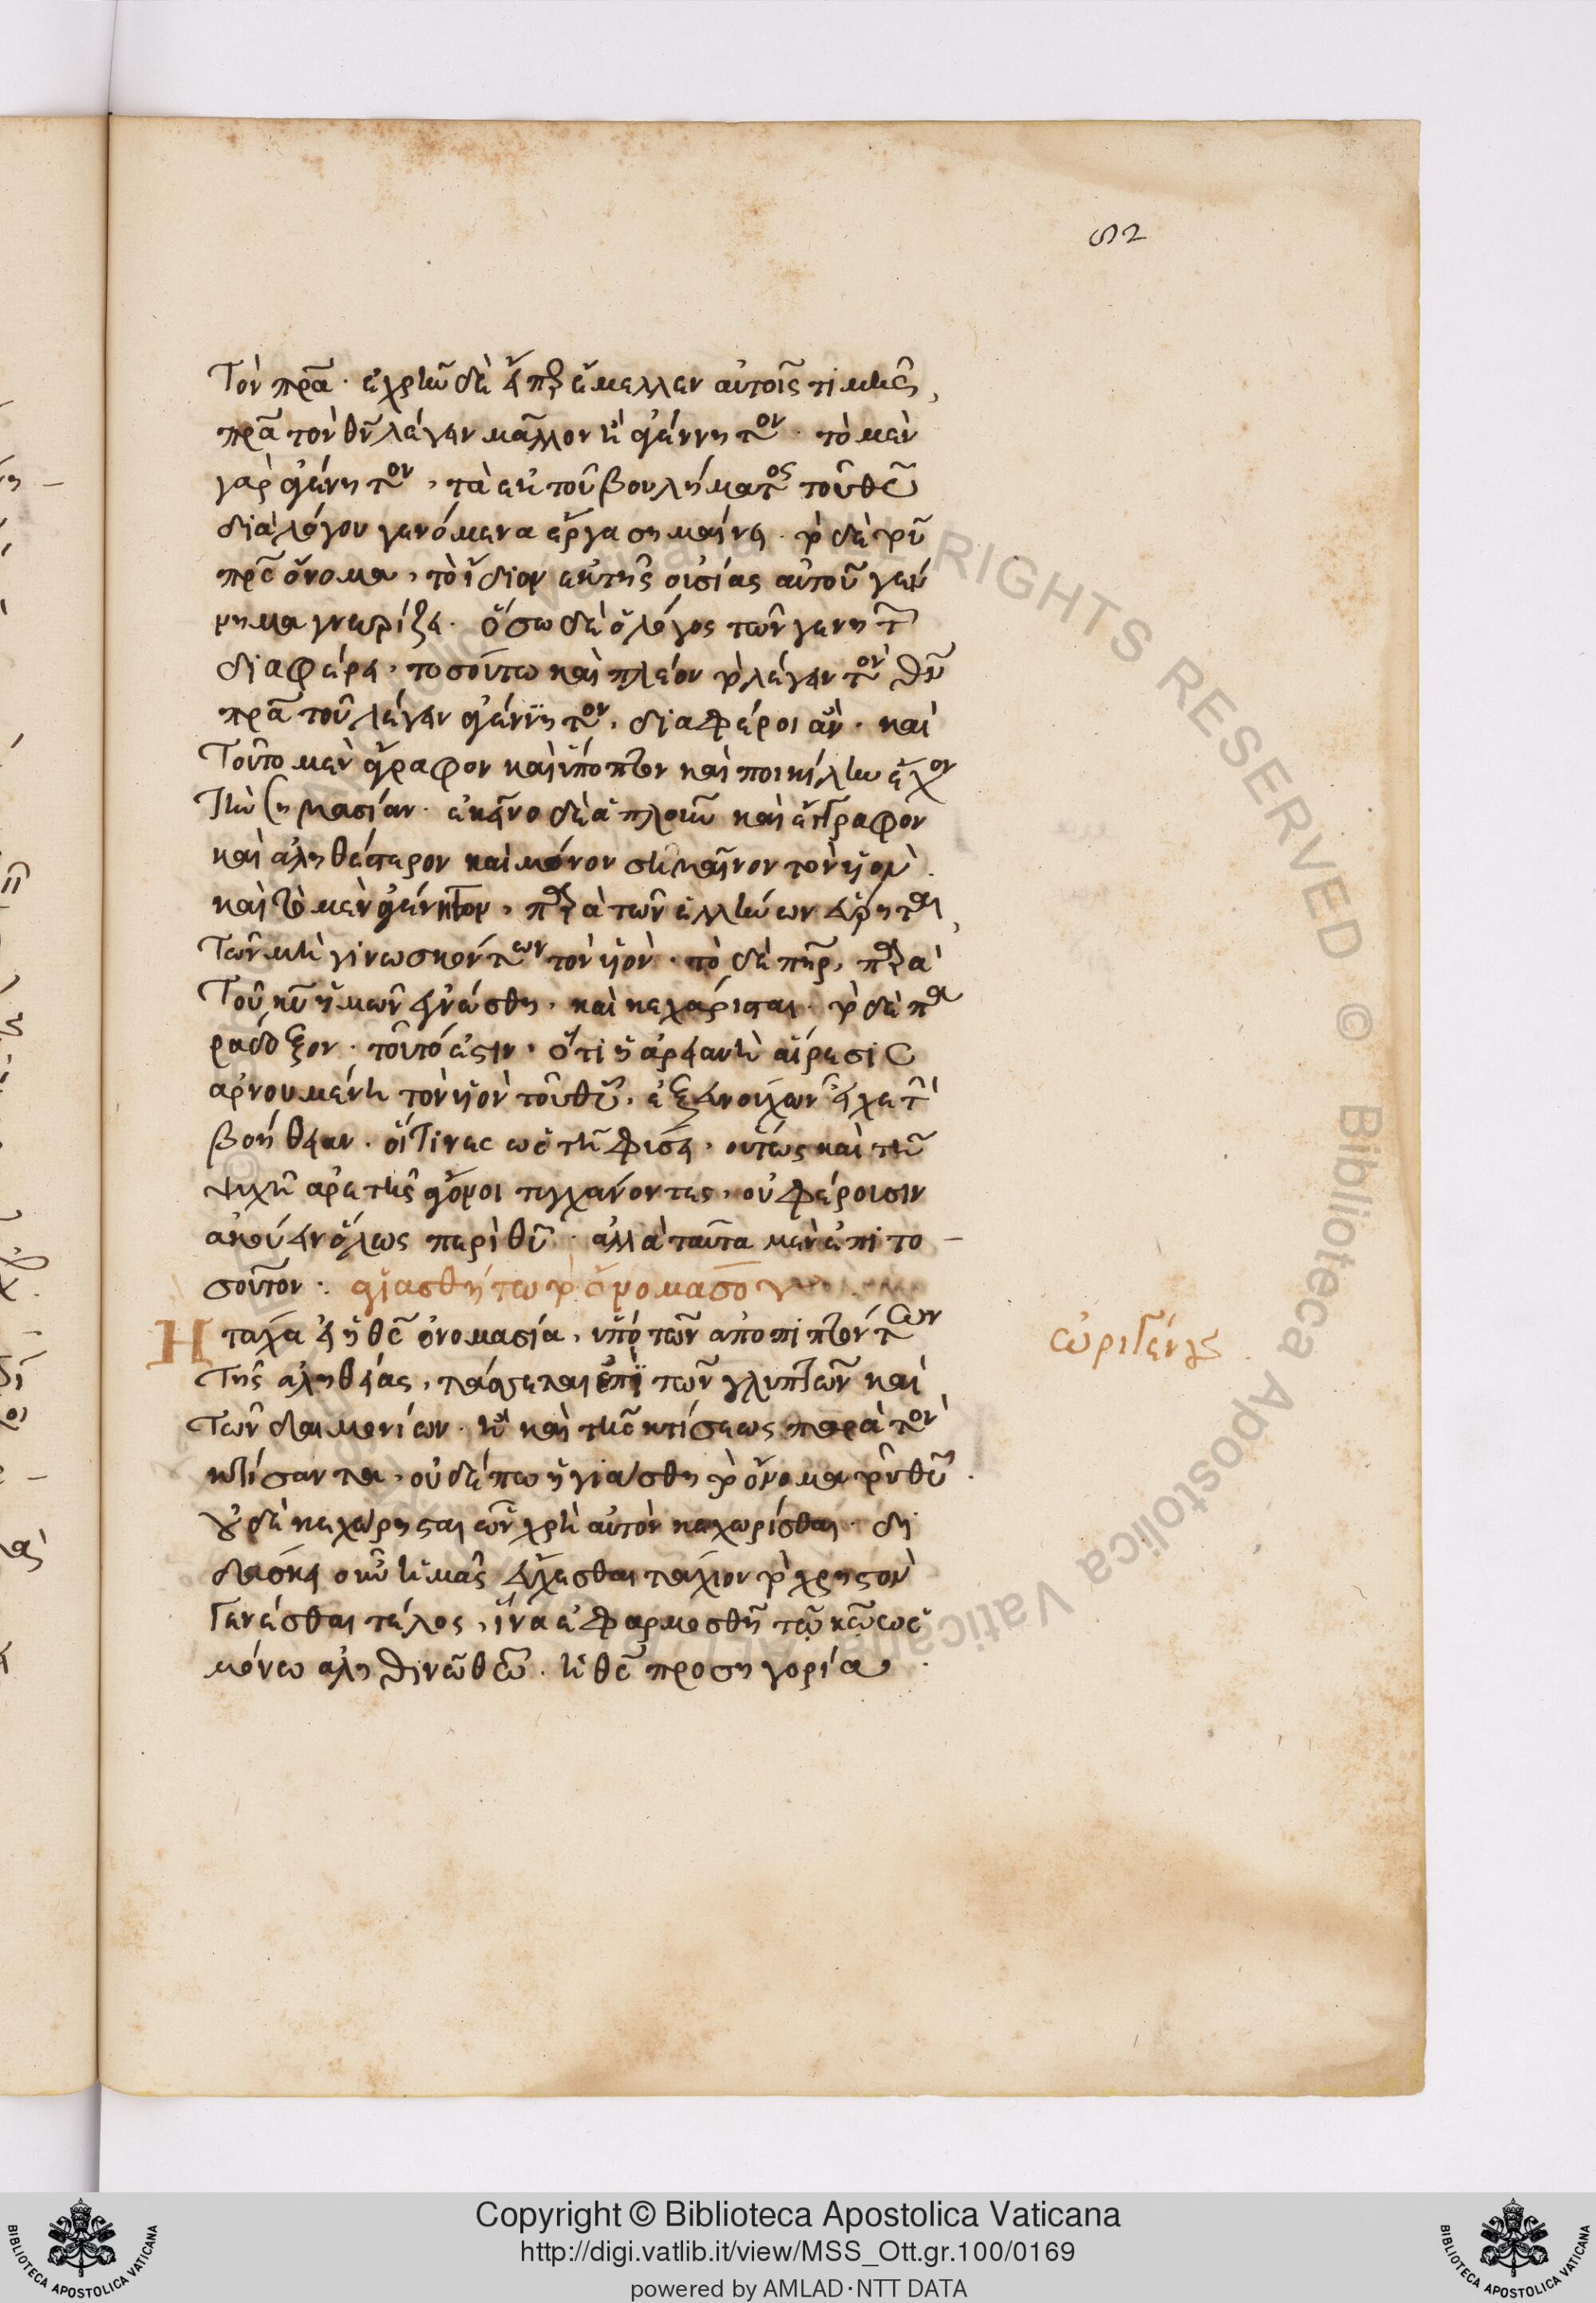 82
τὸν πρα· ἐχρῆν δὲ εἴπερ ἔμελλεν αὐτοῖς τιμῆς,
πρα τὸν θν λέγειν μᾶλλον ἢ ἀγέννητον· τὸ μὲν
γὰρ ἀγένητον, τὰ ἐκ τοῦ βουλήματος τοῦ θυ
διὰ λόγου γενόμενα ἔργα σημαίνει· τὸ δὲ τοῦ
πρς ὄνομα, τὸ ἴδιον ἐκ τῆς οὐσίας αὐτοῦ γέν
νημα γνωρίζει· ὅσω δὲ ὁ λόγος τῶν γενητῶν
διαφέρει, τοσούτω καὶ πλέον τὸ λέγειν τὸν θν
πρα τοῦ λέγειν ἀγέννητον, διαφέροι ἂν· καὶ
τοῦτο μὲν ἄγραφον καὶ ὕποπτον καὶ ποικίλην ἔχον
τὴν σημασίαν· ἐκεῖνο δὲ ἁπλοῦν καὶ ἔγγραφον
καὶ ἀληθέστερον καὶ μόνον σημαῖνον τὸν υἱὸν.
καὶ τὸ μὲν ἀγένητον, παρὰ τῶν ἑλλήνων εὕρηται,
τῶν μὴ γινωσκόντων τὸν υἱὸν· τὸ δὲ πηρ, παρὰ
τοῦ κυ ἡμῶν ἐγνώσθη, καὶ κεχάρισται· τὸ δὲ πα
ράδοξον· τοῦτό ἐστιν, ὅτι ἡ ἀρειανὴ αἵρεσις
ἀρνουμένη τὸν υἱὸν τοῦ θυ, ἐξ εὐνούχων ἔσχε τὴν
βοήθειαν· οἵτινες ὡς τῆ φύσει, οὕτως καὶ τὴν
ψυχὴν ἀρετῆς ἄγονοι τυγχάνοντες, οὐ φέρουσιν
ἀκούειν ὅλως περὶ υἱοῦ· ἀλλὰ ταῦτα μὲν ἐπὶ το
σοῦτον· ἁγιασθήτω τὸ ὄνομα σου
Η τάχα εἰ ἡ θς ὀνομασία, ὑπὸ τῶν ἀποπιπτόντων
τῆς ἀληθείας, τάσσεται ἐπὶ τῶν γλυπτῶν καὶ
τῶν δαιμονίων· ἢ καὶ τῆς κτίσεως παρὰ τὸν
κτίσαντα, οὐδέπω ἡγιάσθη τὸ ὄνομα τοῦ θυ.
οὐδὲ κεχώρισται ὧν χρὴ αὐτὸν κεχωρίσθαι· δι
δάσκει οὖν ἡμᾶς εὔχεσθαι τάχιον τὸ χρηστὸν
γενέσθαι τέλος, ἵνα ἐφαρμοσθῆ τῶ κω ὡς
μόνω ἀληθινῶ θω· ἡ θς προσηγορία.
ὠριγένης
Copyright © Biblioteca Apostolica Vaticana
http://digi.vatlib.it/view/MSS_Ott.gr.100/0169
powered by AMLAD·NTT DATA